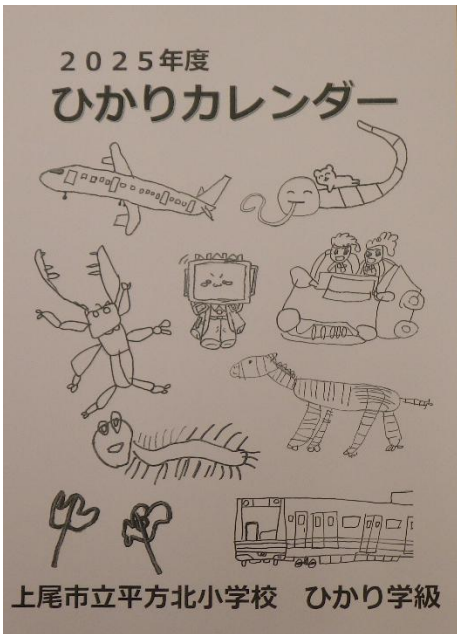 ２０２５年度
ひかりカレンダー
上尾市立平方北小学校　ひかり学級